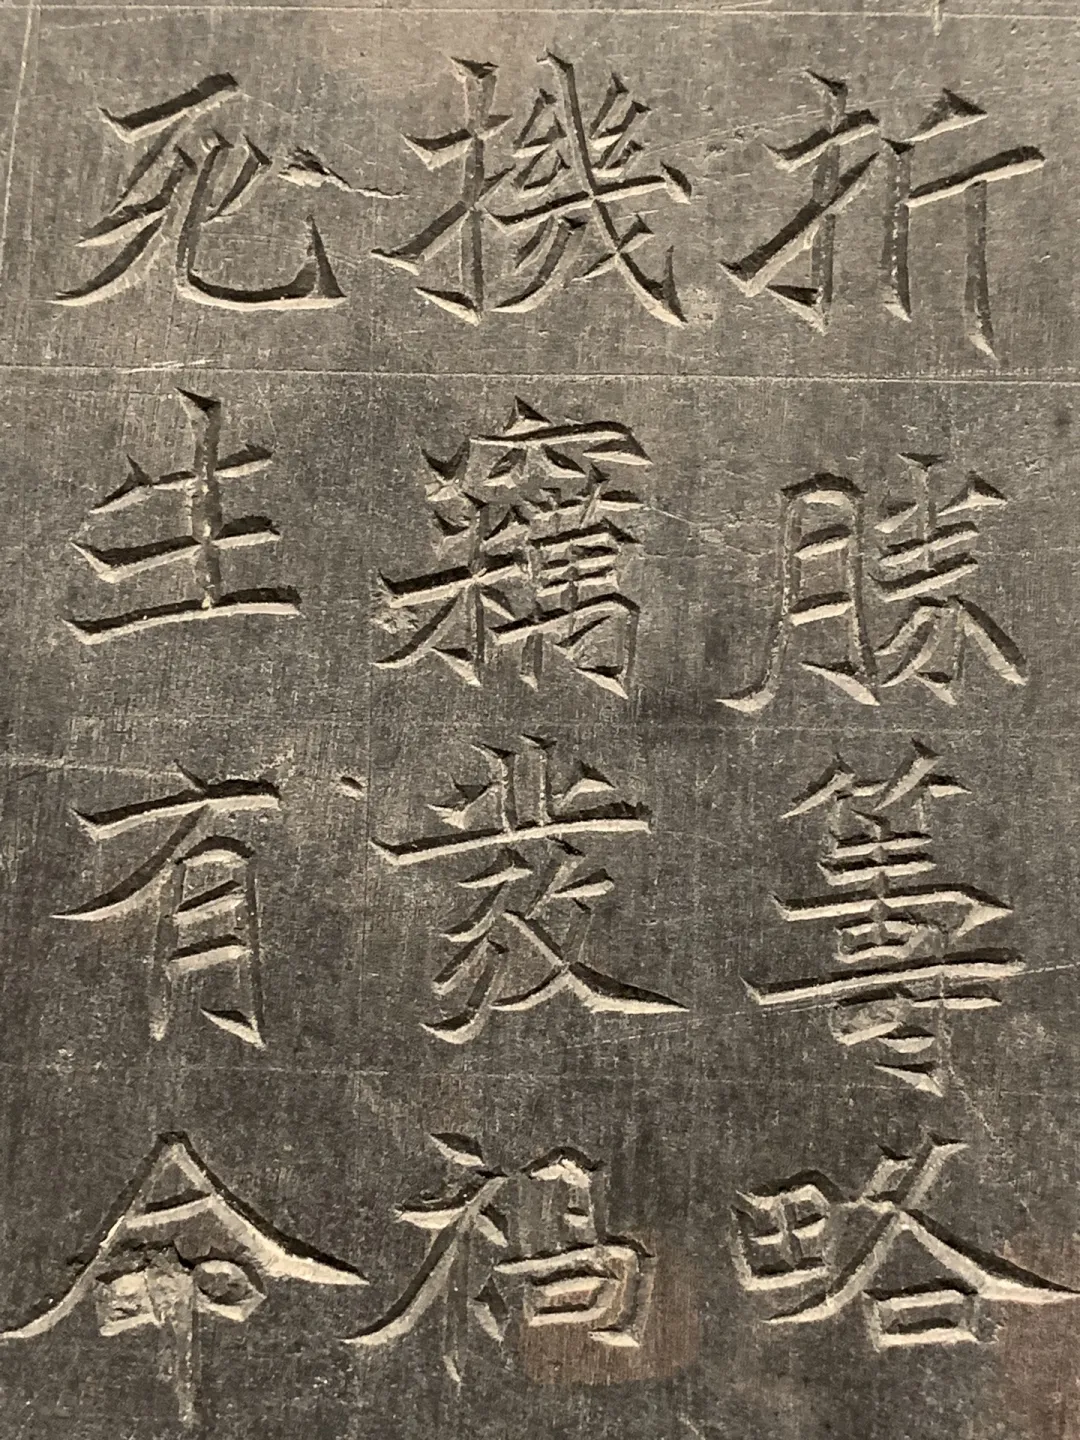 折勝籌略
機竊發禍
死生有命